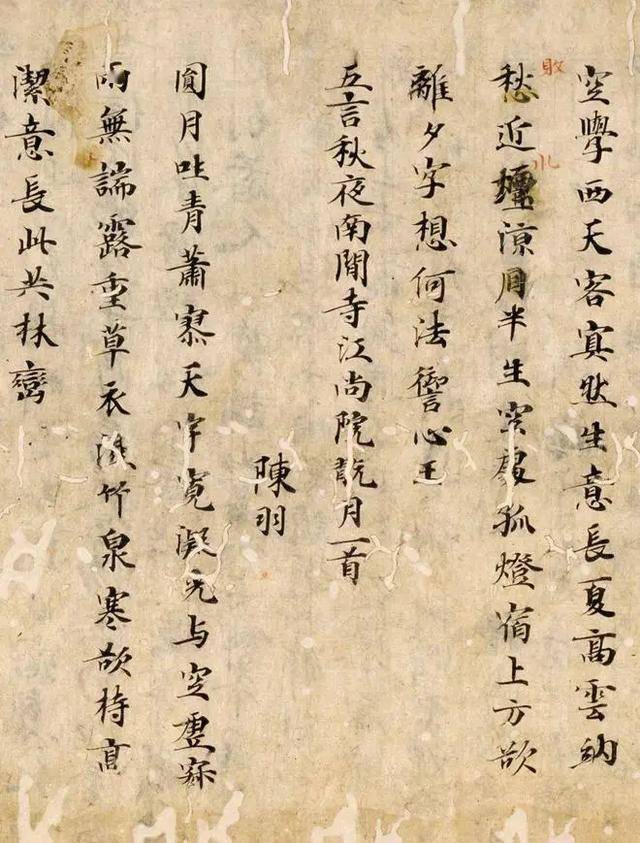 空學西天客㝠然生意長夏高雲納
敗
愁近壇涼月半生空殿孤燈宿上方欲
小
離夕字想何法讐心王
五言秋夜南閒寺江尚院翫月一首
陳羽
圓月吐青蕭寥天宇寛凝光与空虛
雨無端露重草衣濕竹泉寒欲持高
潔意長此共林巒